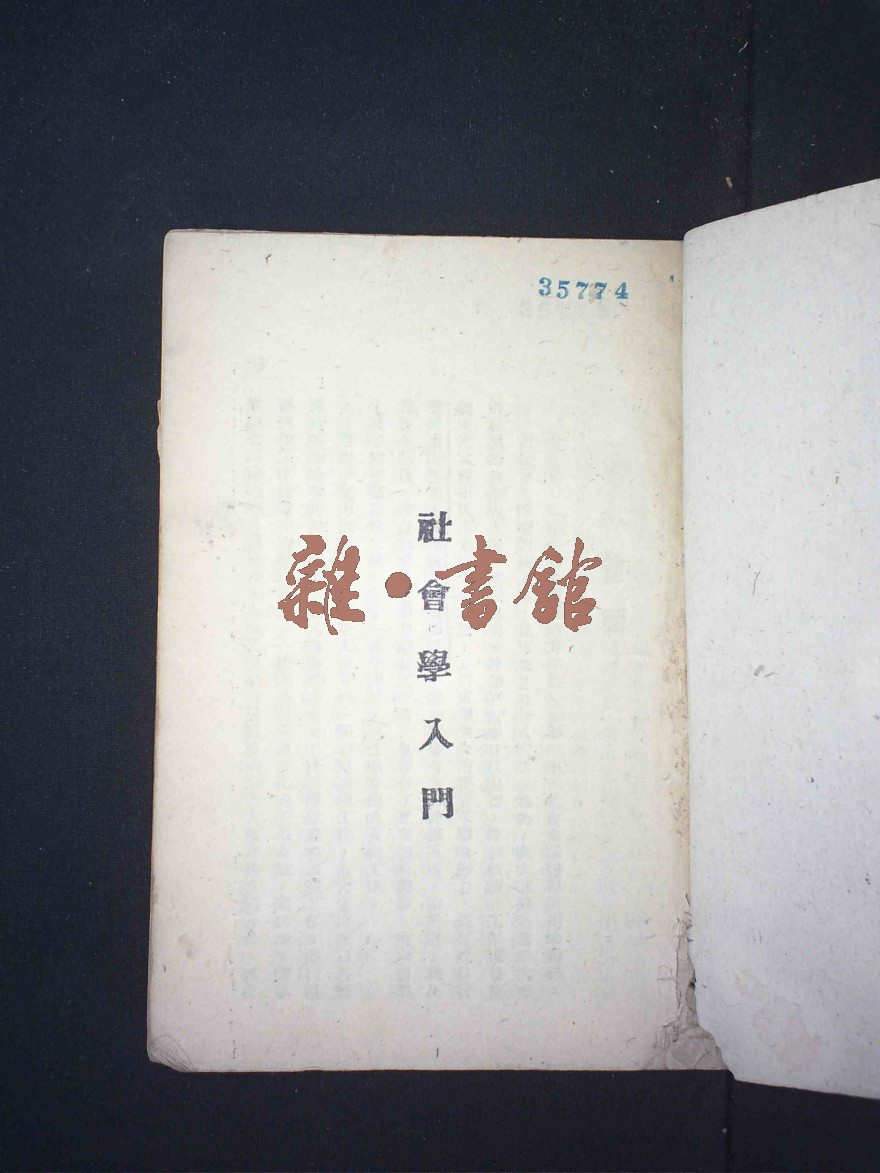 35774
社會學入門
雜·書館